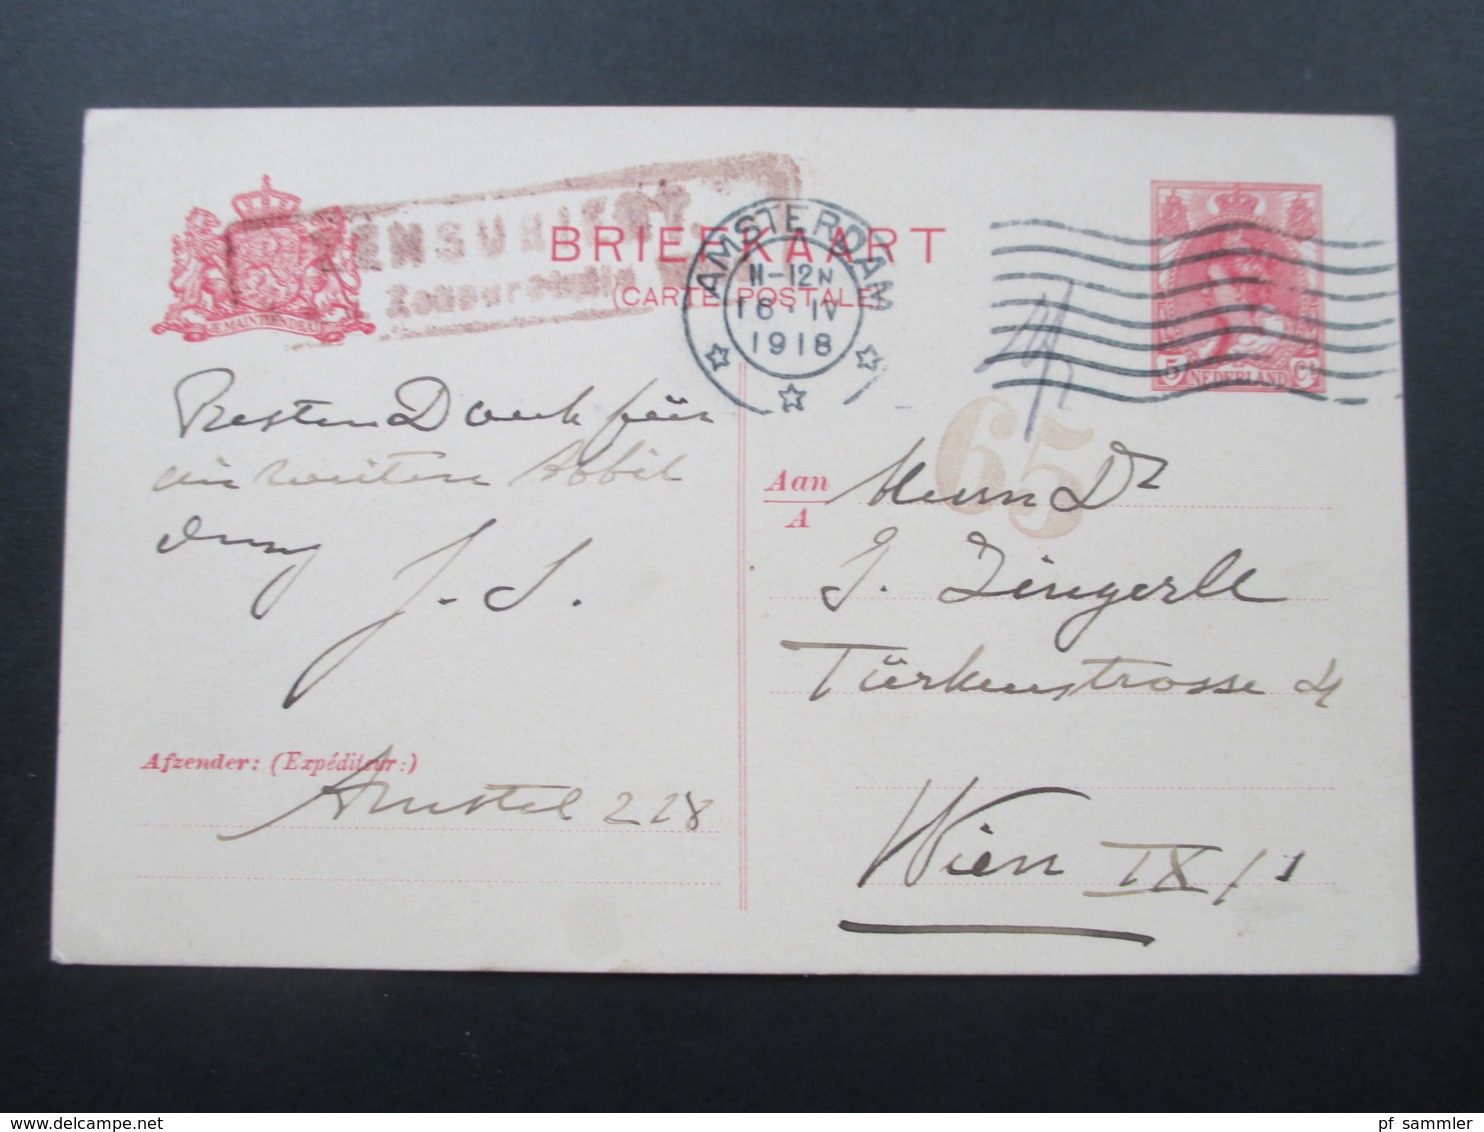 ZENSURIERT.
BRIEFKAART
(CARTE POSTALE)
AMSTERDAM
11-12N
16·IV
1918
JE MAINTIENDRAI
5 NEDERLAND Ct
65
Besten Dank für
die weitere Abbil
dung J. S.
Aan
A
Herrn Dr
J. Zingerle
Türkenstrasse 4
Wien IX/1
Afzender: (Expéditeur:)
Amstel 228
delcampe.net
pf_sammler